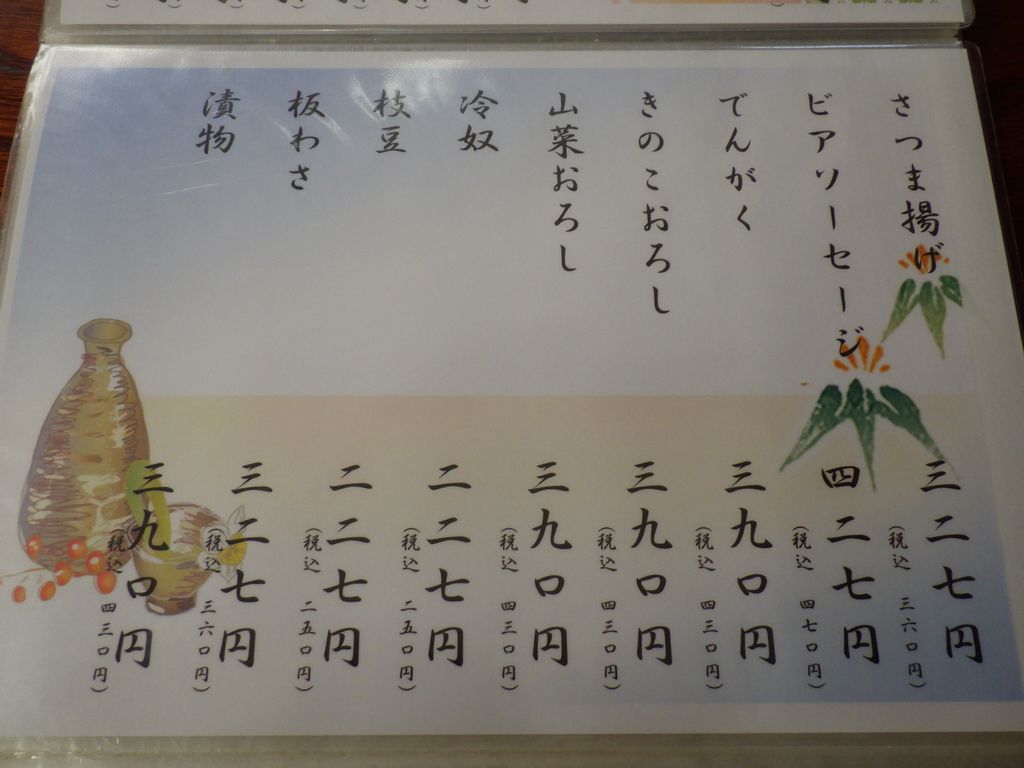 さつま揚げ 三二七円
(税込 三六〇円)
ビアソーセージ 四二七円
(税込 四七〇円)
でんがく 三九〇円
(税込 四三〇円)
きのこおろし 三九〇円
(税込 四三〇円)
山菜おろし 三九〇円
(税込 四三〇円)
冷奴 二二七円
(税込 二五〇円)
枝豆 二二七円
(税込 二五〇円)
板わさ 三二七円
(税込 三六〇円)
漬物 三九〇円
(税込 四三〇円)